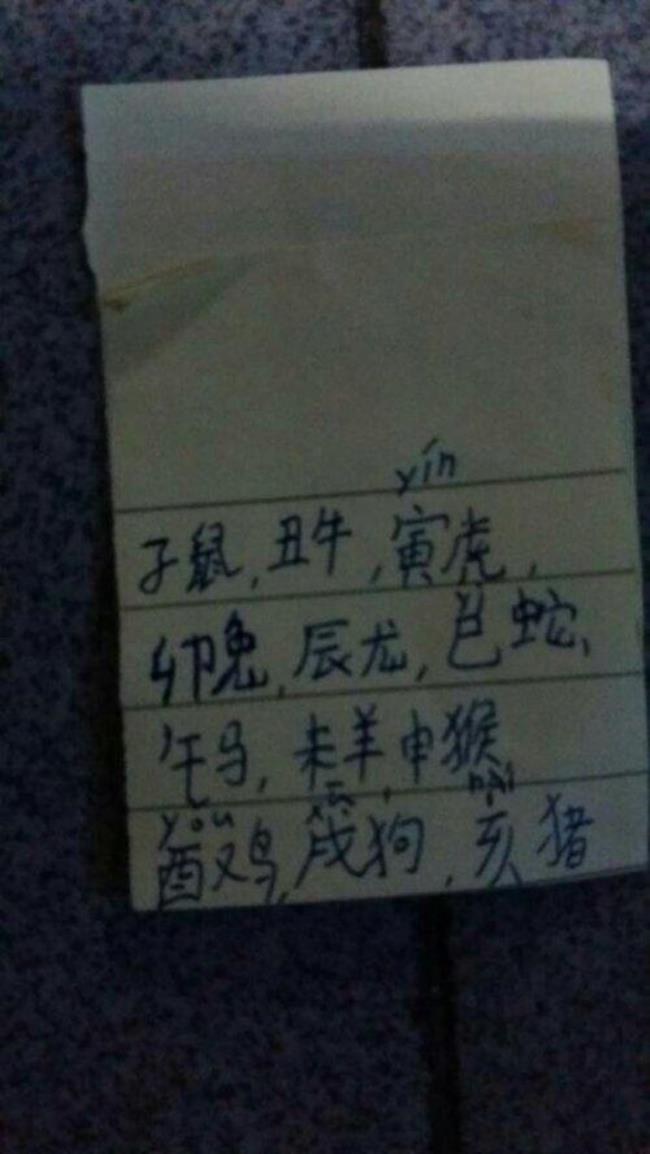 yín
子鼠,丑牛,寅虎,
卯兔,辰龙,邑蛇、
午马,未羊,申猴
yǒu xū hài
酉鸡,戌狗,亥猪